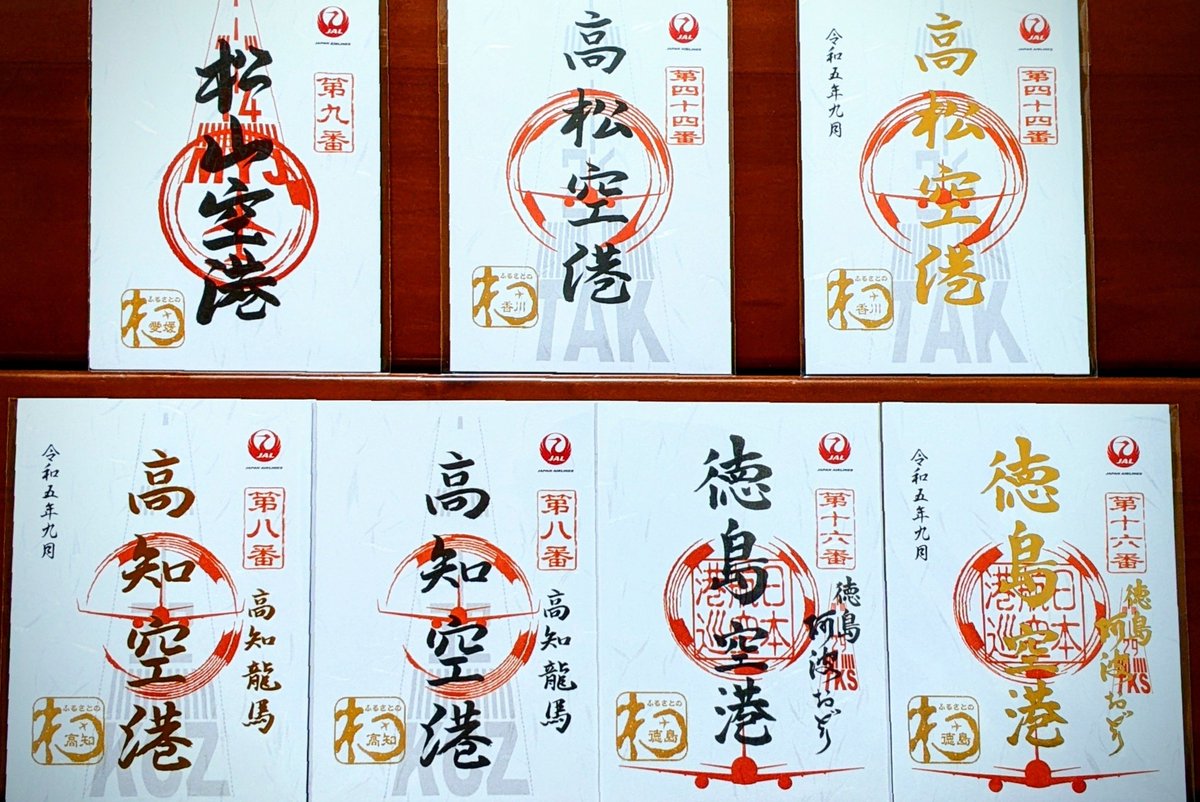 松山空港
JAL
JAPAN AIRLINES
第九番
4
MYJ
ふるさとの
愛媛
高松空港
JAL
JAPAN AIRLINES
第四十四番
TAK
ふるさとの
香川
令和五年九月
高松空港
JAL
JAPAN AIRLINES
第四十四番
TAK
ふるさとの
香川
令和五年九月
高知空港
JAL
JAPAN AIRLINES
第八番
高知龍馬
KCZ
ふるさとの
高知
高知空港
JAL
JAPAN AIRLINES
第八番
高知龍馬
KCZ
ふるさとの
高知
徳島空港
JAL
JAPAN AIRLINES
第十六番
徳島
阿波おどり
TKS
ふるさとの
徳島
令和五年九月
徳島空港
JAL
JAPAN AIRLINES
第十六番
徳島
阿波おどり
TKS
ふるさとの
徳島